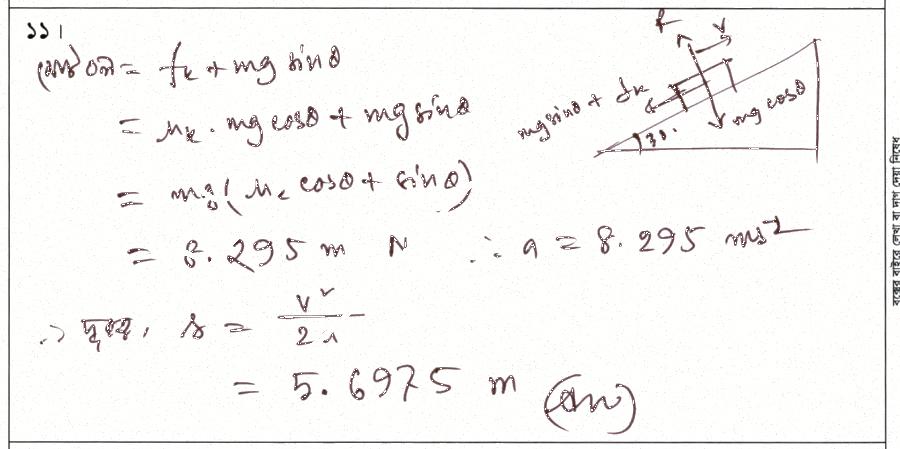 ১১।
মোট বল = fₖ + mg sinθ
= μₖ. mg cosθ + mg sinθ
= mg(μₖ cosθ + sinθ)
= 8.295 m N ∴ a = 8.295 ms⁻²
∴ দূরত্ব, s = v²/2a
= 5.6975 m (Ans)
R
v
mg sinθ + fₖ
mg cosθ
30°
বক্সের বাইরে লেখা বা দাগ দেয়া নিষেধ